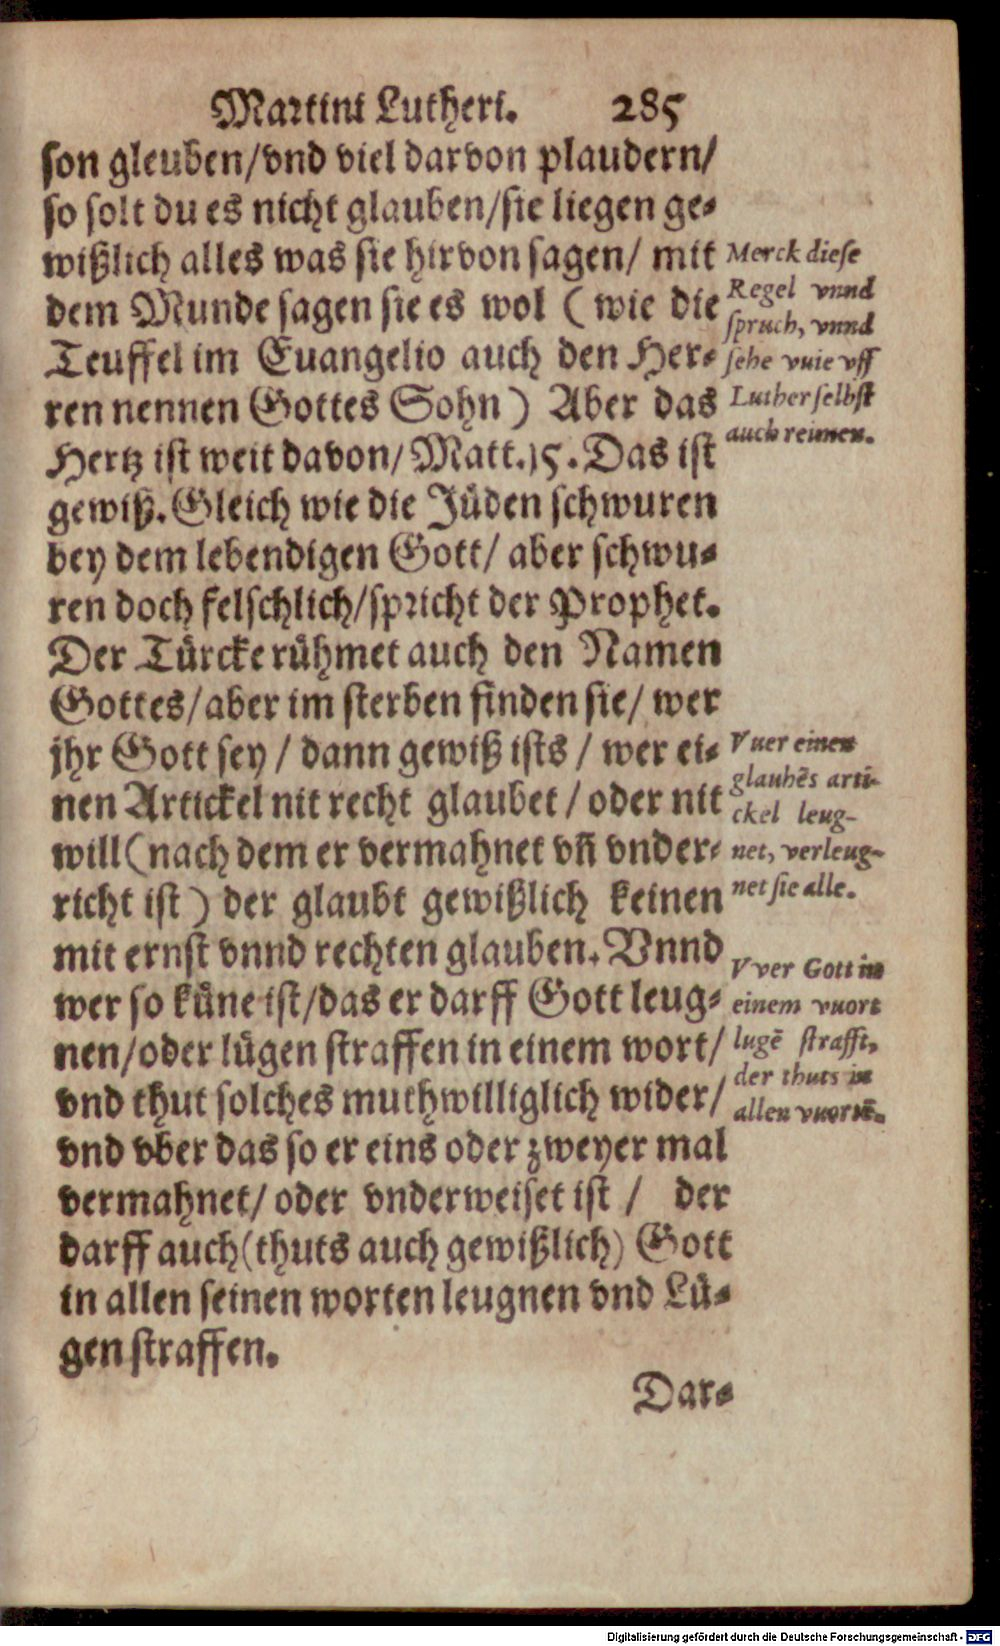 Martini Lutheri. 285
son gleuben/vnd viel darvon plaudern/
so solt du es nicht glauben/sie liegen ge-
wißlich alles was sie hirvon sagen/ mit
dem Munde sagen sie es wol (wie die
Teuffel im Euangelio auch den Her-
ren nennen Gottes Sohn) Aber das
Hertz ist weit davon/Matt.15. Das ist
gewiß. Gleich wie die Jüden schwuren
bey dem lebendigen Gott/ aber schwu-
ren doch felschlich/spricht der Prophet.
Der Türcke rühmet auch den Namen
Gottes/aber im sterben finden sie/ wer
jhr Gott sey/ dann gewiß ists/ wer ei-
nen Artickel nit recht glaubet/oder nit
will(nach dem er vermahnet vñ vnder-
richt ist) der glaubt gewißlich keinen
mit ernst vnnd rechten glauben. Vnnd
wer so küne ist/das er darff Gott leug-
nen/oder lügen straffen in einem wort/
vnd thut solches muthwilliglich wider/
vnd vber das so er eins oder zweyer mal
vermahnet/ oder vnderweiset ist/ der
darff auch(thuts auch gewißlich) Gott
in allen seinen worten leugnen vnd Lü-
gen straffen.
Dar-
Merck diese
Regel vnnd
spruch, vnnd
sehe vuie vff
Luther selbst
auch reimen.
Vuer einen
glaubẽs arti-
ckel leug-
net, verleug-
net sie alle.
Vver Gott in
einem vuort
lugẽ strafft,
der thuts in
allen vuortẽ.
Digitalisierung gefördert durch die Deutsche Forschungsgemeinschaft - DFG